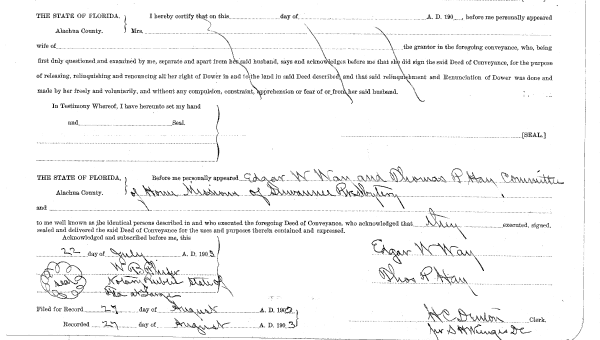 THE STATE OF FLORIDA, I hereby certify that on this day of A. D. 190 , before me personally appeared
Alachua County. Mrs.
wife of the grantor in the foregoing conveyance, who, being
first duly questioned and examined by me, separate and apart from her said husband, says and acknowledges before me that she did sign the said Deed of Conveyance, for the purpose
of releasing, relinquishing and renouncing all her right of Dower in and to the land in said Deed described, and that said relinquishment and Renunciation of Dower was done and
made by her freely and voluntarily, and without any compulsion, constraint, apprehension or fear of or from her said husband.
In Testimony Whereof, I have hereunto set my hand
and Seal.
[SEAL.]
THE STATE OF FLORIDA, Before me personally appeared Edgar W Way and Thomas P Hay, Committee
Alachua County. of Home Missions of Suwannee Presbytery
and
to me well known as the identical persons described in and who executed the foregoing Deed of Conveyance, who acknowledged that they executed, signed,
sealed and delivered the said Deed of Conveyance for the uses and purposes therein contained and expressed.
Acknowledged and subscribed before me, this
22 day of July A. D. 1903
Edgar W Way
Thos P Hay
seal
Notary Public State of
Fla at Large
Filed for Record 27 day of August A. D. 190
Recorded 27 day of August A. D. 1903
H C Denton Clerk.
per S H Wienges DC